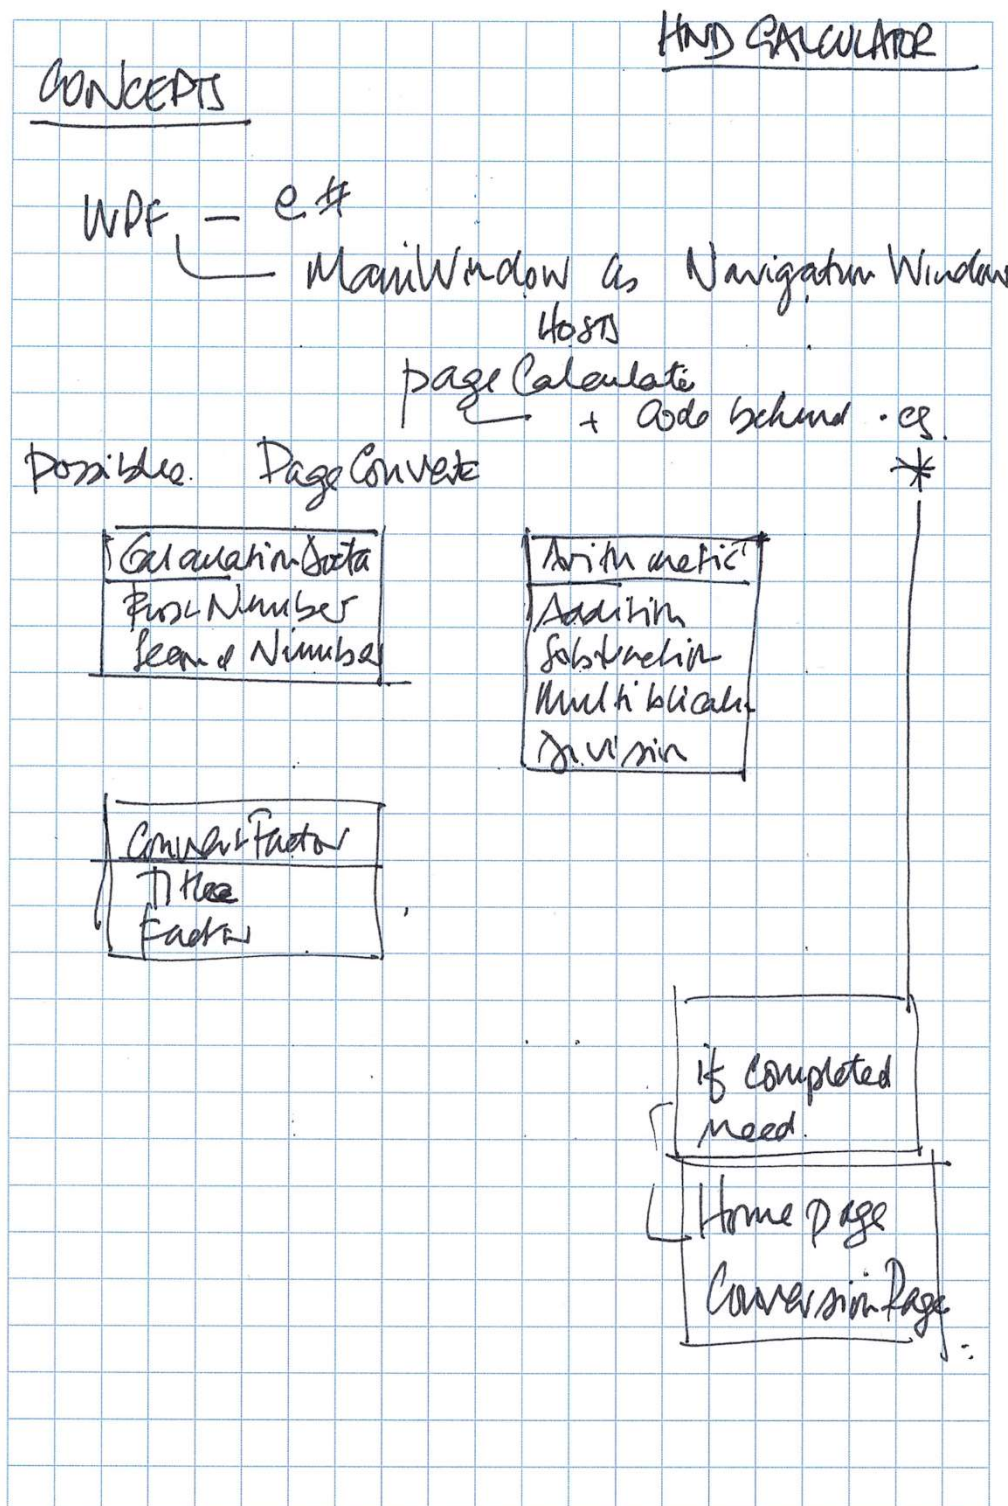 HND CALCULATOR
CONCEPTS
WPF – C#
MainWindow as Navigation Window
HOSTS
page Calculate
+ Code behind .cs
*
possible. Page Convert
CalculationData
First Number
Second Number
Arithmetic
Addition
Subtraction
Multiblicati
Division
ConvertFactor
Title
Factor
if completed
need.
Home page
Conversion Page